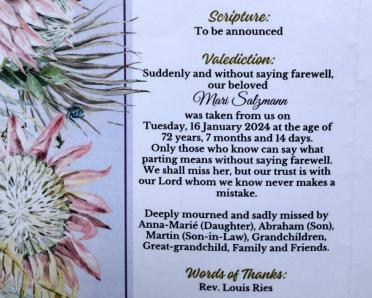 Scripture:
To be announced
Valediction:
Suddenly and without saying farewell,
our beloved
Mari Salzmann
was taken from us on
Tuesday, 16 January 2024 at the age of
72 years, 7 months and 14 days.
Only those who know can say what
parting means without saying farewell.
We shall miss her, but our trust is with
our Lord whom we know never makes a
mistake.
Deeply mourned and sadly missed by
Anna-Marié (Daughter), Abraham (Son),
Martin (Son-in-Law), Grandchildren,
Great-grandchild, Family and Friends.
Words of Thanks:
Rev. Louis Ries